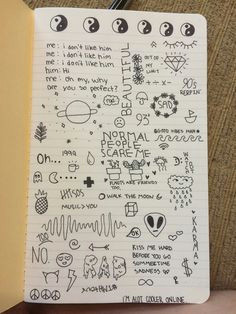 me: i don't like him
me: i don't like him
me: i don't like him
him: Hi
me: oh my, why
are you so perfect?
BEAUTIFUL
OUT OF
MY
LIMIT
90's
SAD
93'
GOOD VIBES MAN
NORMAL
PEOPLE
SCARE ME
Oh...
1990
PLANTS ARE FRIENDS
TOO
WALK THE MOON
MUSIC > YOU
TOO
OK
NO.
KISS ME HARD
BEFORE YOU GO
SUMMERTIME
SADNESS
KARMA
I'M A LOT COOLER ONLINE